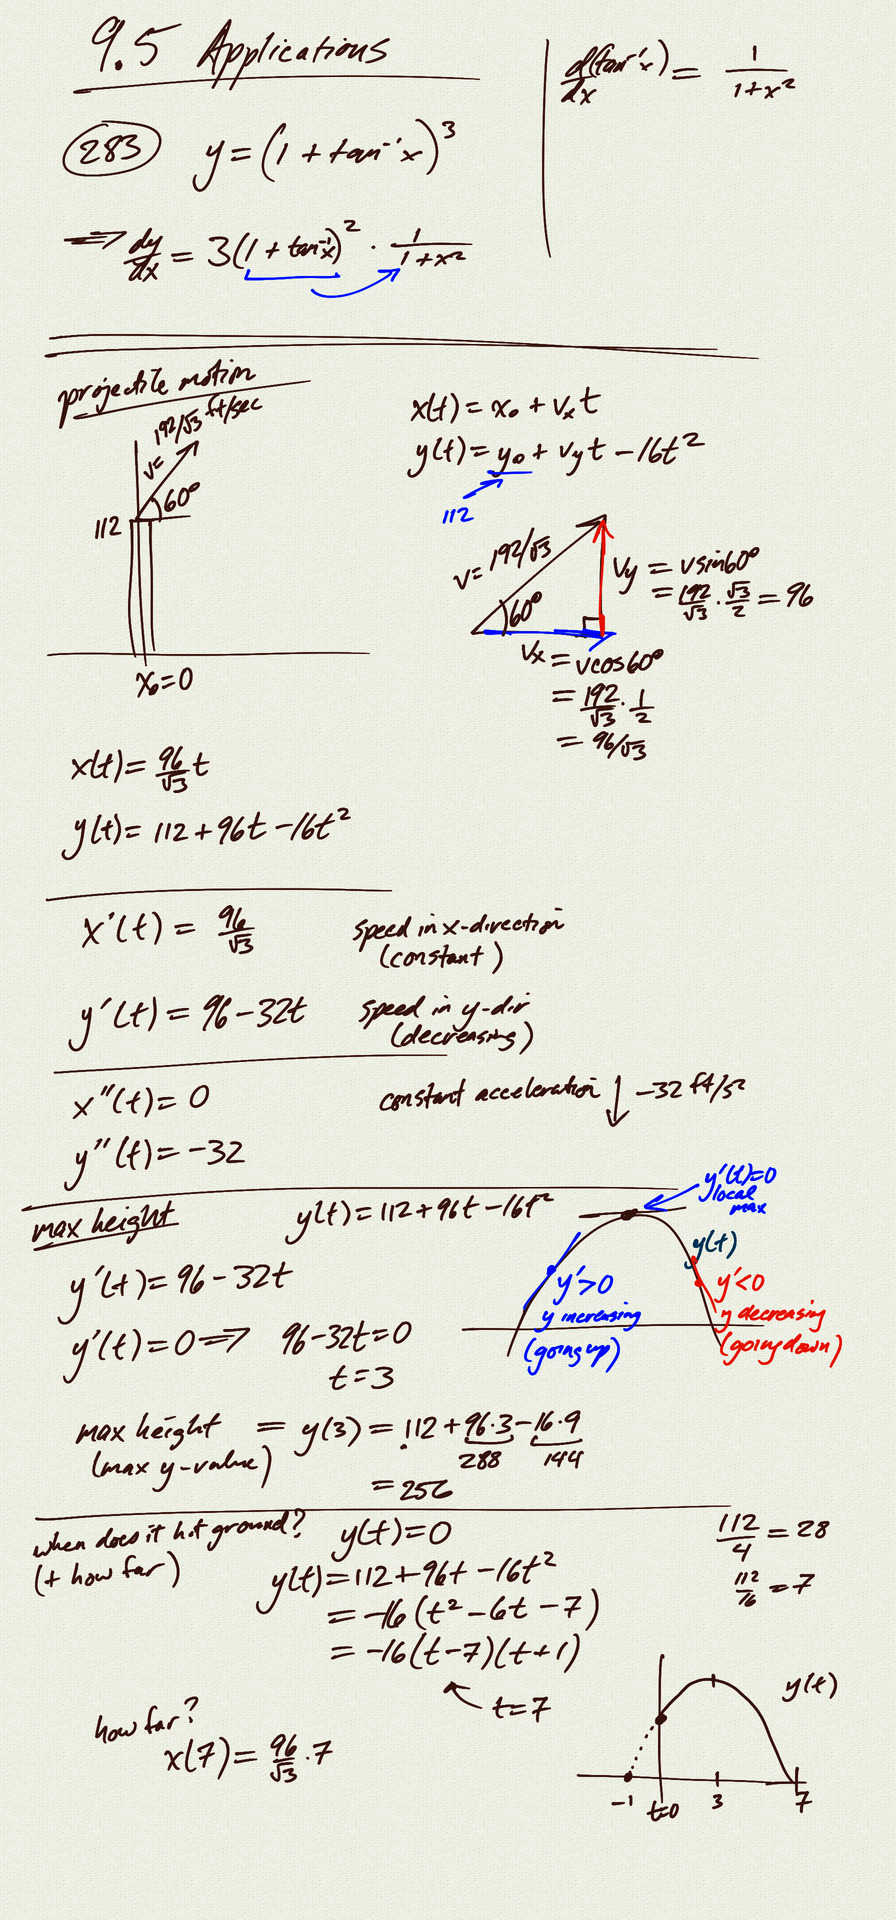 9.5 Applications
d(tan⁻¹x)/dx = 1/(1+x²)
283 y = (1 + tan⁻¹x)³
⟹ dy/dx = 3(1 + tan⁻¹x)² · 1/(1+x²)
projectile motion
v = 192/√3 ft/sec
60°
112
x₀=0
x(t) = x₀ + vₓt
y(t) = y₀ + v_y t - 16t²
112
v = 192/√3
60°
v_y = v sin60°
= 192/√3 · √3/2 = 96
vₓ = v cos60°
= 192/√3 · 1/2
= 96/√3
x(t) = 96/√3 t
y(t) = 112 + 96t - 16t²
x'(t) = 96/√3 speed in x-direction
(constant)
y'(t) = 96 - 32t speed in y-dir
(decreasing)
x''(t) = 0 constant acceleration ↓ -32 ft/s²
y''(t) = -32
max height y(t) = 112 + 96t - 16t²
y'(t)=0
local
max
y(t)
y'>0
y increasing
(going up)
y'<0
y decreasing
(going down)
y'(t) = 96 - 32t
y'(t) = 0 ⟹ 96 - 32t = 0
t = 3
max height = y(3) = 112 + 96·3 - 16·9
(max y-value) 288 144
= 256
when does it hit ground? y(t) = 0
(+ how far)
y(t) = 112 + 96t - 16t²
= -16(t² - 6t - 7)
= -16(t - 7)(t + 1)
t = 7
112/4 = 28
112/16 = 7
how far?
x(7) = 96/√3 · 7
y(t)
-1 t=0 3 7